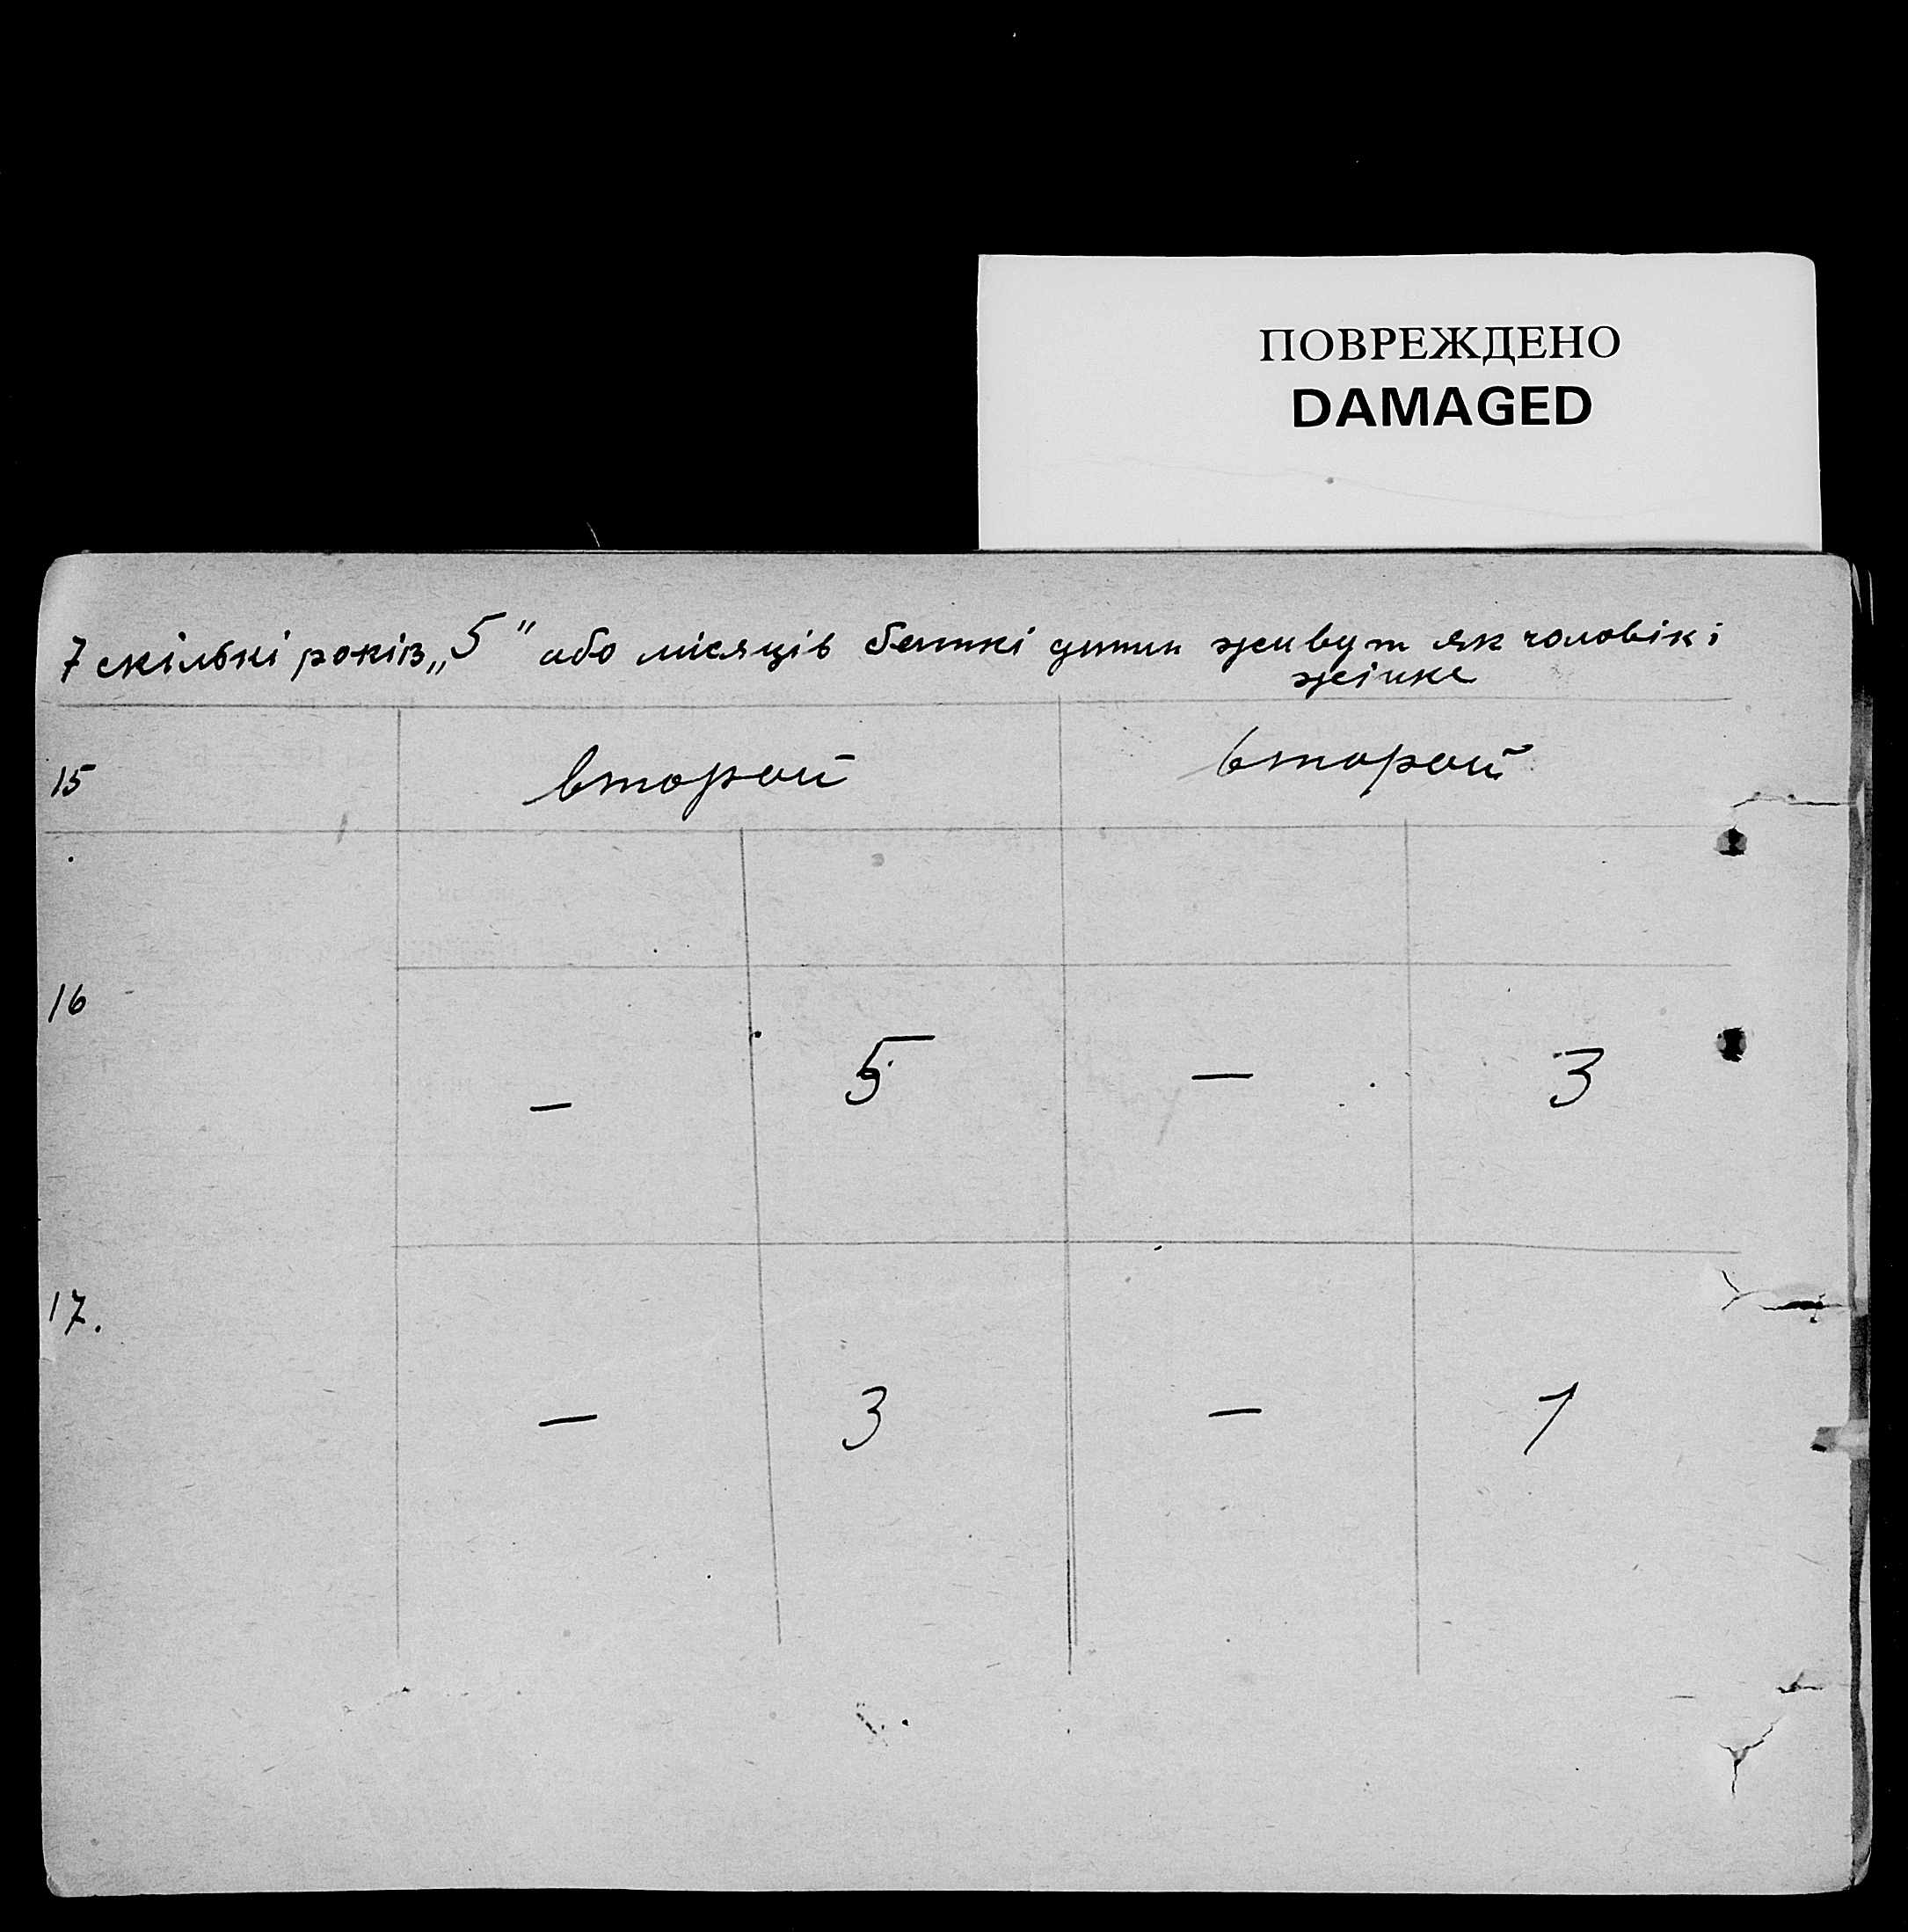 ПОВРЕЖДЕНО
DAMAGED
7 скількі років „5" або місяців батькі дитин живут як чоловік і
жінке
15 второй второй
16 — 5 — 3
17. — 3 — 1